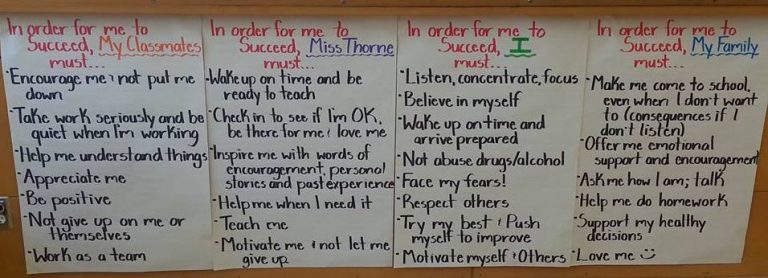 In order for me to
Succeed, My Classmates
must...
· Encourage me & not put me
down
· Take work seriously and be
quiet when I'm working
· Help me understand things
· Appreciate me
· Be positive
· Not give up on me or
themselves
· Work as a team
In order for me to
Succeed, Miss Thorne
must...
· Wake up on time and be
ready to teach
· Check in to see if I'm OK,
be there for me & love me
· Inspire me with words of
encouragement, personal
stories and past experience
· Help me when I need it
· Teach me
· Motivate me & not let me
give up
In order for me to
Succeed, I
must...
· Listen, concentrate, focus
· Believe in myself
· Wake up on time and
arrive prepared
· Not abuse drugs/alcohol
· Face my fears!
· Respect others
· Try my best & Push
myself to improve
· Motivate myself & Others
In order for me to
Succeed, My Family
must...
· Make me come to school,
even when I don't want
to (consequences if I
don't listen)
· Offer me emotional
support and encouragement
· Ask me how I am; talk
· Help me do homework
· Support my healthy
decisions
· Love me ☺